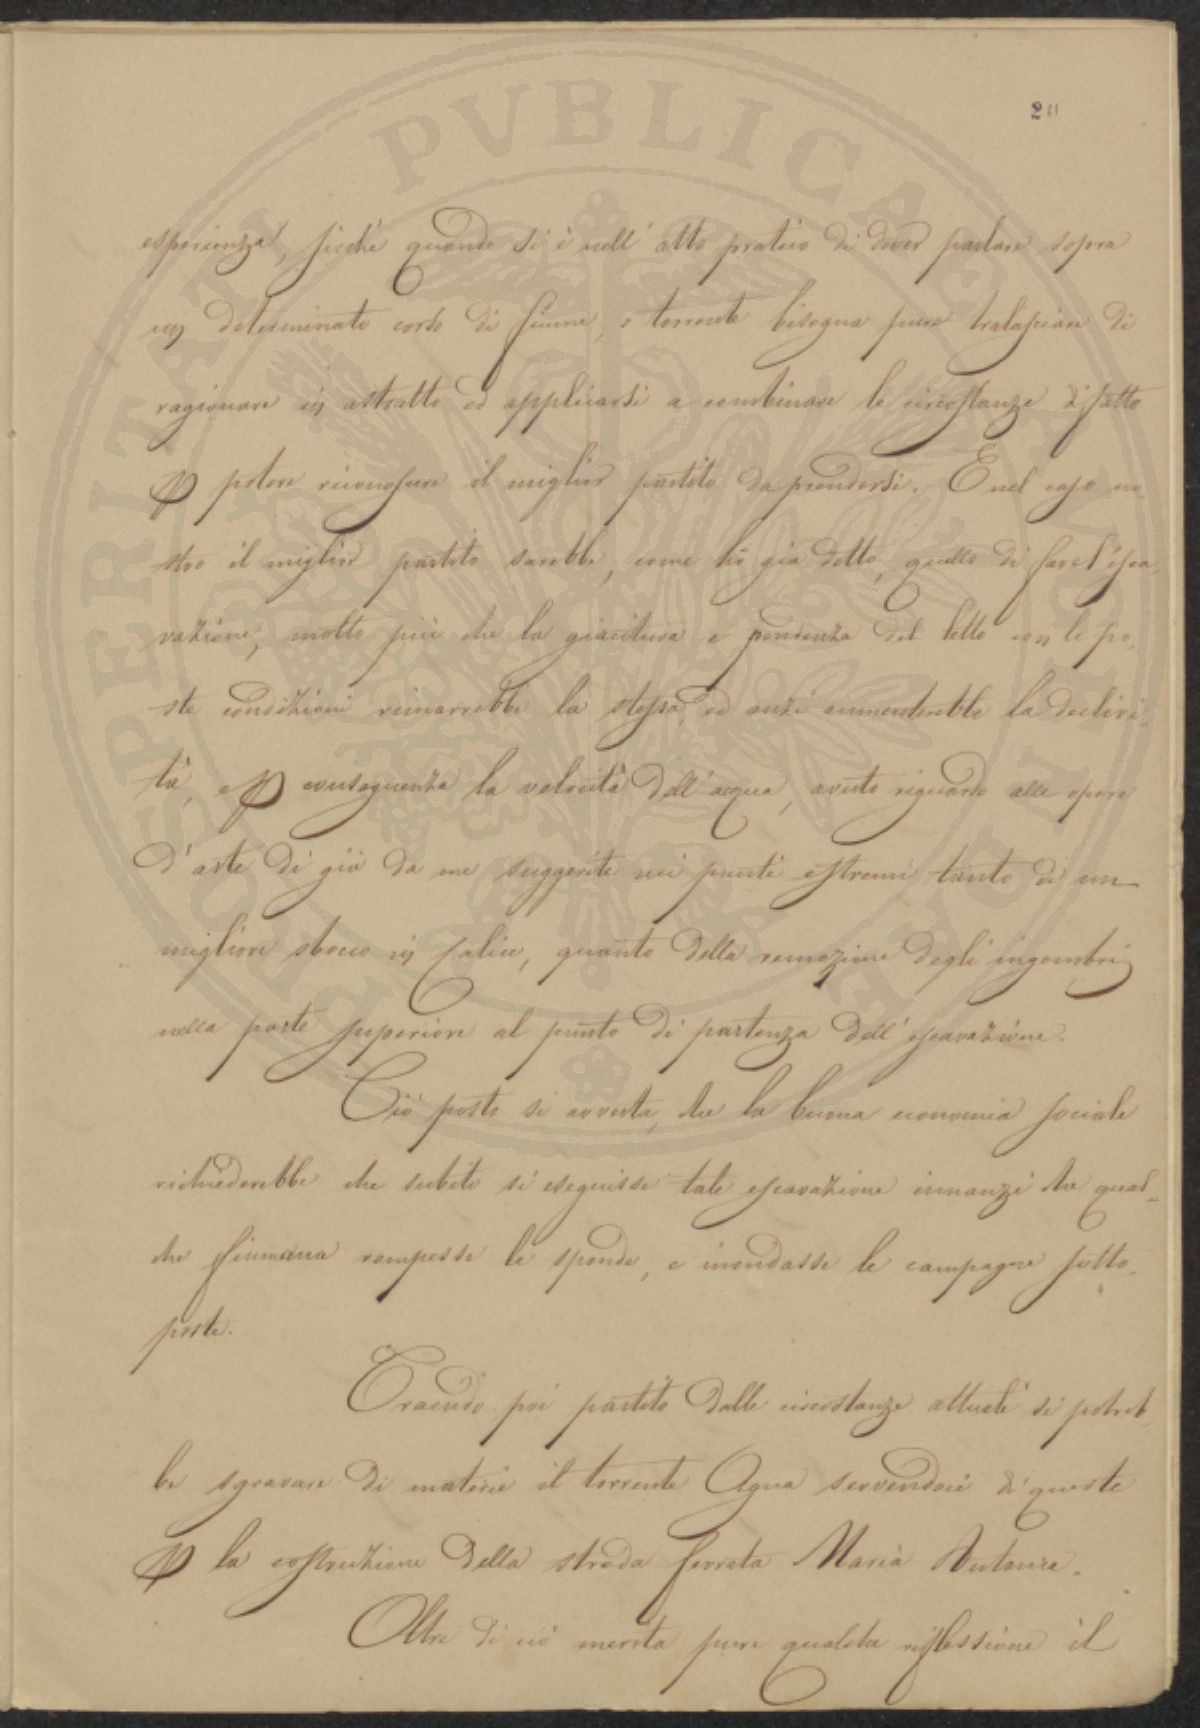 20
esperienza, sicchè quando si è nell'atto pratico di dover parlare sopra
un determinato corso di fiume, o torrente bisogna pure tralasciare di
ragionare in astratto ed applicarsi a combinare le circostanze di fatto
p potere riconoscere il miglior partito da prendersi. E nel caso no-
stro il miglior partito sarebbe, come hò già detto, quello di fare l'esca-
vazione, molto più che la giacitura e pendenza del letto con le po-
ste condizioni rimarrebbe la stessa, ed anzi aumenterebbe la declivi-
tà, e p conseguenza la velocità dell'acqua, avuto riguardo alle opere
d'arte di già da me suggerite nei punti estremi tanto di un
migliore sbocco in Calice, quanto della remozione degli ingombri
nella parte superiore al punto di partenza dell'escavazione.
Ciò posto si avverte, che la buona economia sociale
richiederebbe che subito si eseguisse tale escavazione innanzi che qual-
che fiumana rompesse le sponde, e inondasse le campagne sotto-
poste.
Traendo poi partito dalle circostanze attuali si potreb-
be sgravare di materie il torrente Agna servendoci di queste
p la costruzione della strada ferrata Maria Antonia.
Oltre di ciò merita pure qualche riflessione il